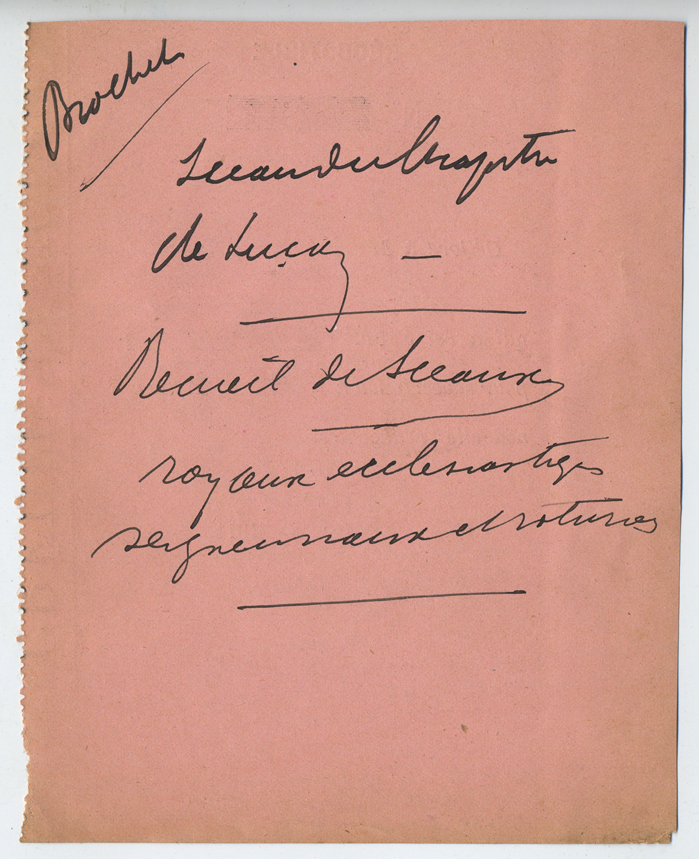 Brochet
Sceau du Chapitre
de Luçay —
Recueil de Sceaux
royaux ecclesiastiques
seigneuriaux et roturiers